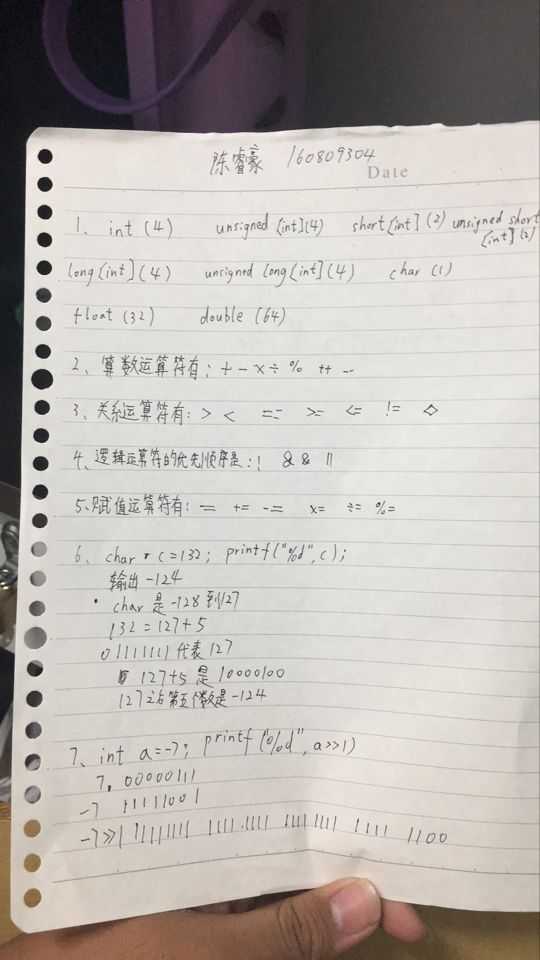 陈睿豪 160809304
Date
1、int (4) unsigned [int](4) short[int](2) unsigned short [int](2)
long[int](4) unsigned long[int](4) char (1)
float (32) double (64)
2、算数运算符有: + - × ÷ % ++ --
3、关系运算符有: > < == >= <= != <>
4、逻辑运算符的优先顺序是: ! && ||
5、赋值运算符有: = += -= ×= ÷= %=
6、char c=132; printf("%d",c);
输出 -124
char 是 -128 到 127
132 = 127+5
01111111 代表 127
127+5 是 10000100
127之后第五个数是 -124
7、int a=-7; printf("%d", a>>1)
7 00000111
-7 11111001
-7>>1 11111111 1111 1111 1111 1111 1111 1100